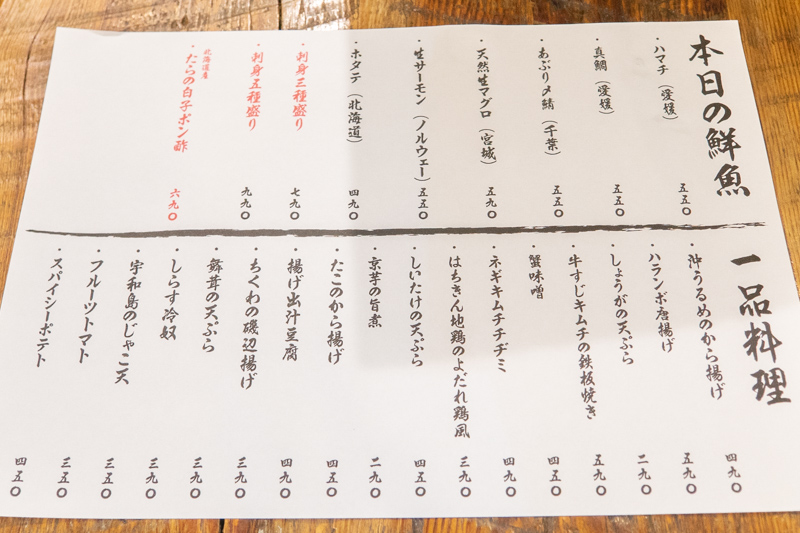 本日の鮮魚
・ハマチ（愛媛） 五五〇
・真鯛（愛媛） 五五〇
・あぶり〆鯖（千葉） 五五〇
・天然生マグロ（宮城） 五九〇
・生サーモン（ノルウェー） 五五〇
・ホタテ（北海道） 四九〇
・刺身三種盛り 七九〇
・刺身五種盛り 九九〇
北海道産
・たらの白子ポン酢 六九〇
一品料理
・沖うるめのから揚げ 四九〇
・ハランボ唐揚げ 五九〇
・しょうがの天ぷら 二九〇
・牛すじキムチの鉄板焼き 五九〇
・蟹味噌 四五〇
・ネギキムチチヂミ 四九〇
・はちきん地鶏のよだれ鶏風 三九〇
・しいたけの天ぷら 四五〇
・京芋の旨煮 二九〇
・たこのから揚げ 四五〇
・揚げ出汁豆腐 四九〇
・ちくわの磯辺揚げ 三九〇
・舞茸の天ぷら 三九〇
・しらす冷奴 三九〇
・宇和島のじゃこ天 三五〇
・フルーツトマト 三五〇
・スパイシーポテト 四五〇